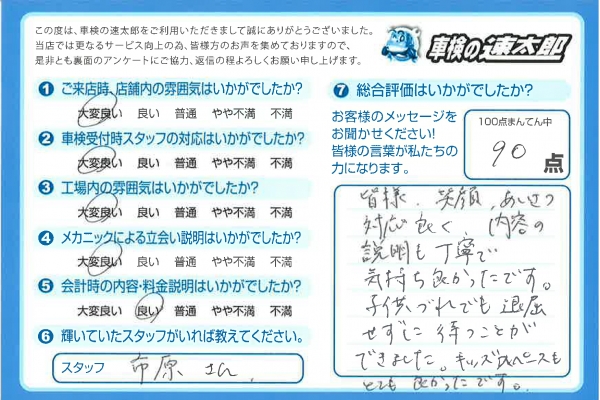 この度は、車検の速太郎をご利用いただきまして誠にありがとうございました。
当店では更なるサービス向上の為、皆様方のお声を集めておりますので、
是非とも裏面のアンケートにご協力、返信の程よろしくお願い申し上げます。
車検の速太郎
1 ご来店時、店舗内の雰囲気はいかがでしたか?
大変良い 良い 普通 やや不満 不満
2 車検受付時スタッフの対応はいかがでしたか?
大変良い 良い 普通 やや不満 不満
3 工場内の雰囲気はいかがでしたか?
大変良い 良い 普通 やや不満 不満
4 メカニックによる立会い説明はいかがでしたか?
大変良い 良い 普通 やや不満 不満
5 会計時の内容・料金説明はいかがでしたか?
大変良い 良い 普通 やや不満 不満
6 輝いていたスタッフがいれば教えてください。
スタッフ 市原 さん
7 総合評価はいかがでしたか?
お客様のメッセージを
お聞かせください!
皆様の言葉が私たちの
力になります。
100点まんてん中
90 点
皆様、笑顔、あいさつ
対応良く、内容の
説明も丁寧で
気持ち良かったです。
子供づれでも退屈
せずに待つことが
できました。キッズスペースも
とても良かったです。